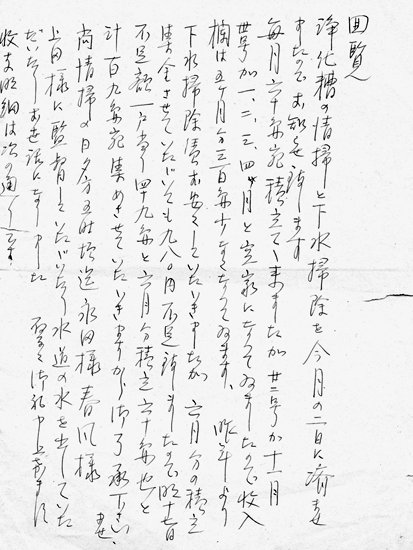 回覧
浄化槽の清掃と下水掃除を今月の二日に済ませ
ましたのでお知らせ致します
毎月六十円宛積立ていますたが 廿二号が十一月
廿号が一、二、三、四ヶ月と空家になっておりましたので収入
欄は五ヶ月分三百円少なくなっております、昨年より
下水掃除費お安くしていただきましたが 六月分の積立
集金させていただいても九八〇円不足致しましたので明十七日
不足額一戸当り四十九円と六月分積立六十円也と
計百九円宛集めさせていただきますから御了承下さいませ
尚清掃の日夕方五時頃迄永田様春風様
上田様に監督していただいたり水道の水を出していた
だいたりお世話になりました 厚く御礼申上げます
収支明細は次の通りです